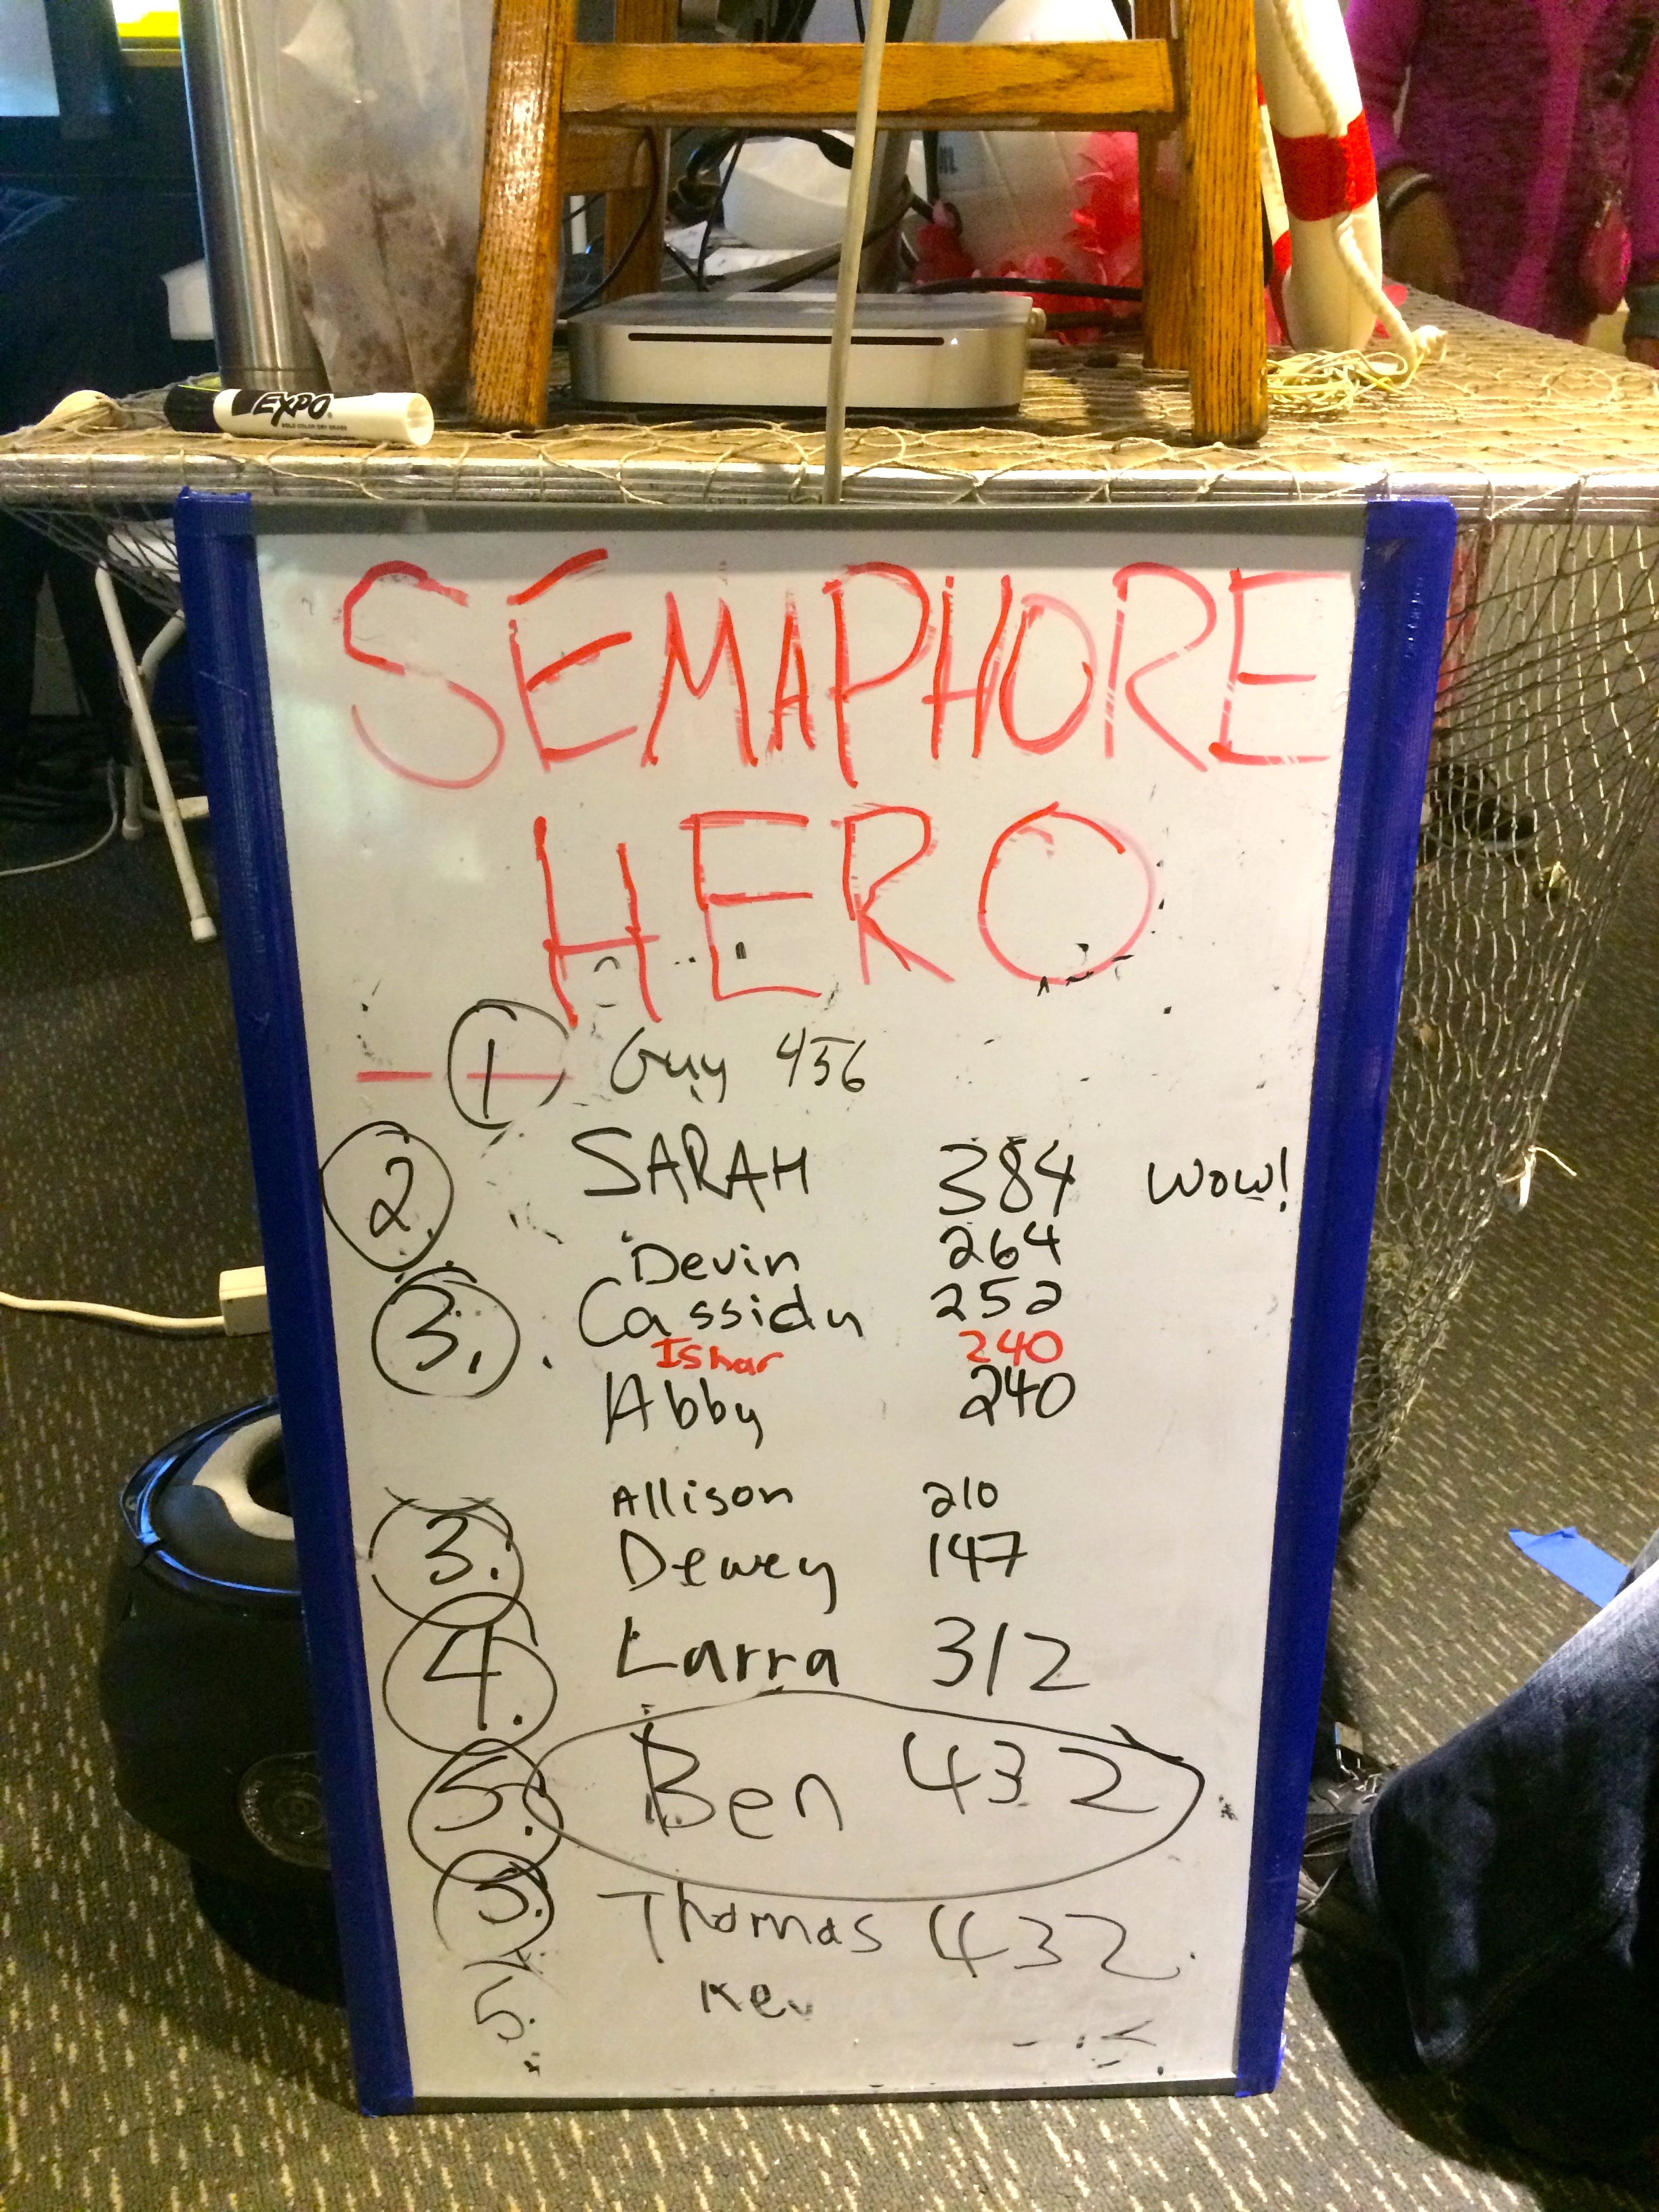 EXPO
SEMAPHORE
HERO
1 Guy 456
2. SARAH 384 WOW!
Devin 264
3. Cassidy 252
Ishar 240
Abby 240
Allison 210
3. Dewey 147
4. Larra 312
5. Ben 432
5. Thomas 432
5. Kev